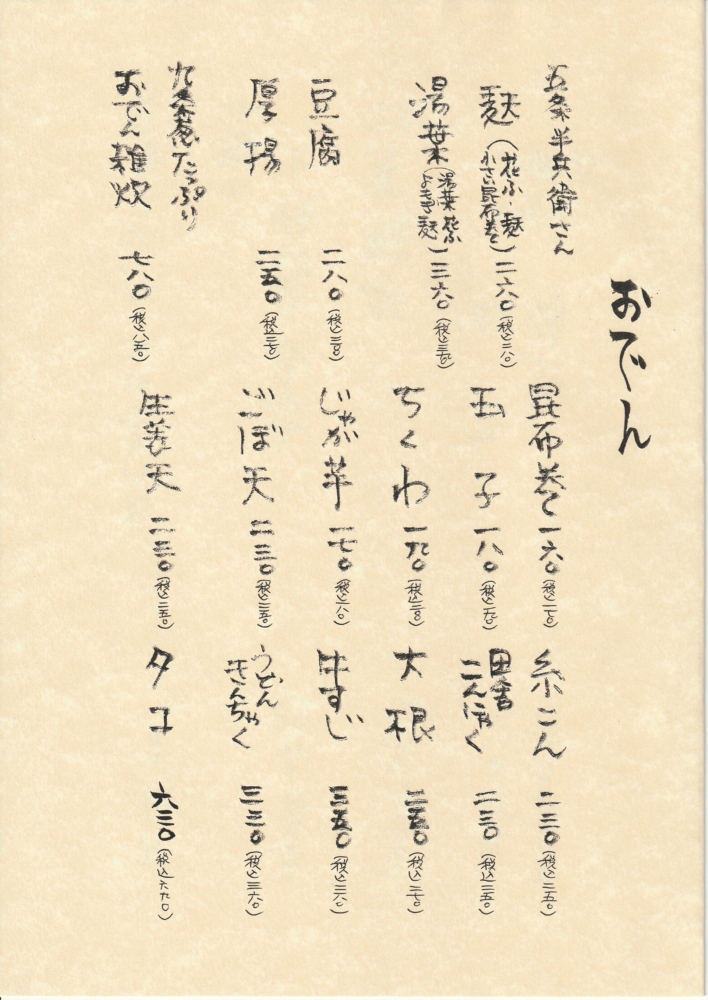 おでん
五条半兵衛さん
麩（花ふ・麩
れさい昆布巻き）二六〇（税込二八〇）
湯葉（湯葉 花ふ
よもぎ麩）三六〇（税込三九〇）
豆腐 二八〇（税込三一〇）
厚揚 二五〇（税込二七〇）
九条葱たっぷり
おでん雑炊 七八〇（税込八五〇）
昆布巻き 一六〇（税込一七〇）
玉子 一八〇（税込一九〇）
ちくわ 一九〇（税込二一〇）
じゃが芋 一七〇（税込一八〇）
ごぼ天 二三〇（税込二五〇）
生姜天 二三〇（税込二五〇）
糸こん 二三〇（税込二五〇）
田舎
こんにゃく 二三〇（税込二五〇）
大根 二五〇（税込二七〇）
牛すじ 三五〇（税込三八〇）
うどん
きんちゃく 三三〇（税込三六〇）
タコ 六三〇（税込六九〇）